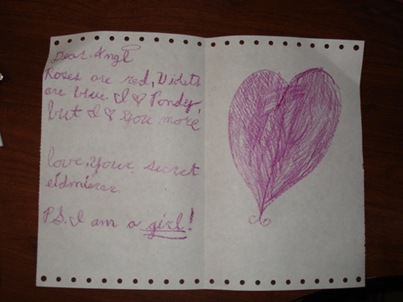 Dear Angl
Roses are red, Videts
are blue. I ♡ Pondy,
but I ♡ you more
love, your secret
eidmierer.
P.S. I am a girl!